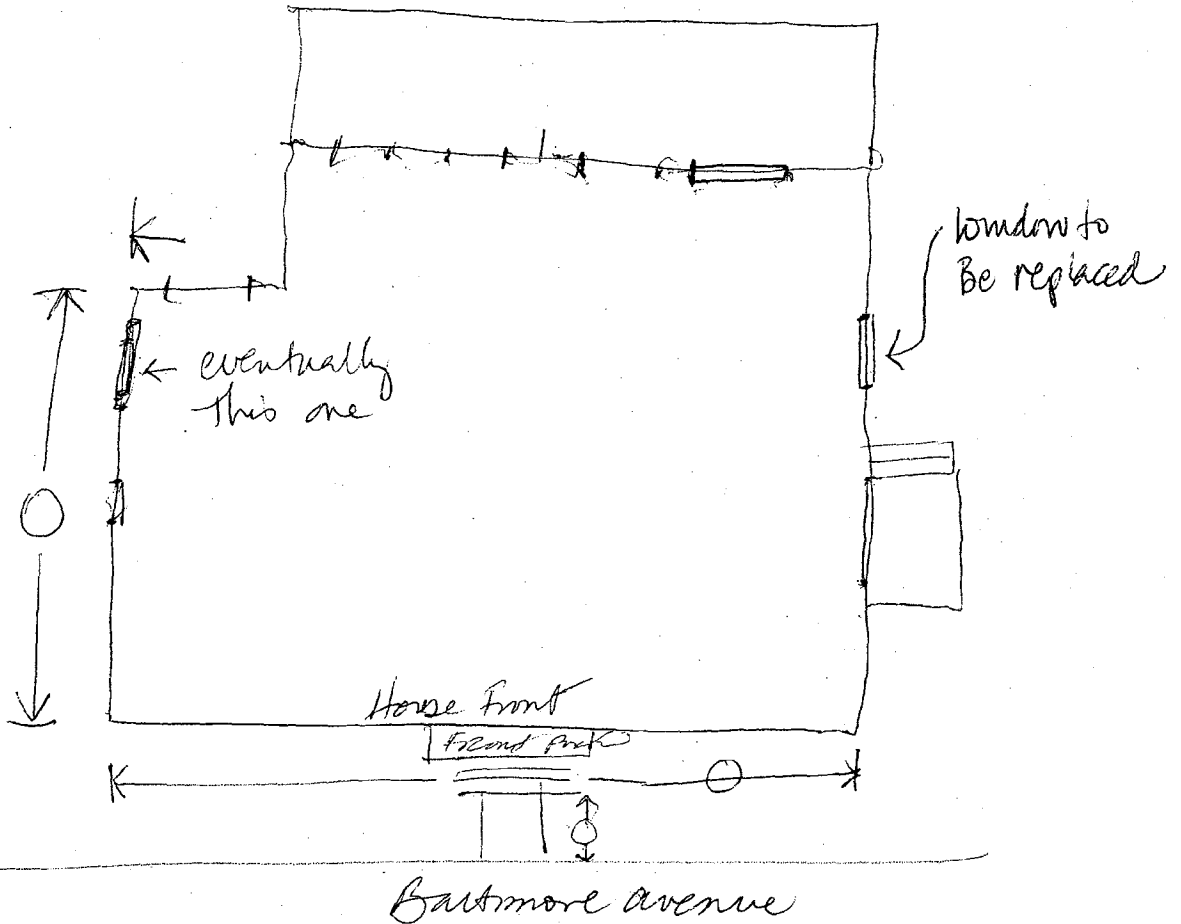 Window to
Be replaced
← eventually
This one
House Front
Front Porch
Baltimore Avenue